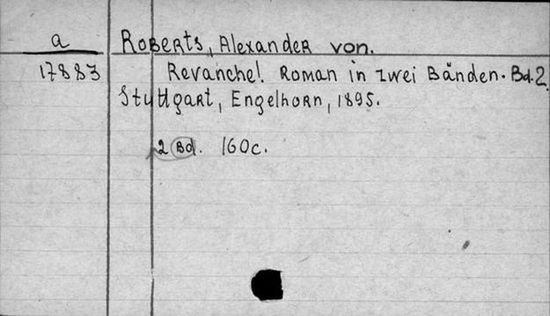 a
Roberts, Alexander von.
17883
Revanche! Roman in zwei Bänden. Bd. 2.
Stuttgart, Engelhorn, 1895.
2 Bd. 160c.